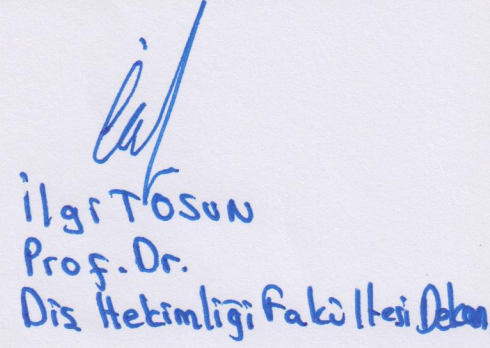 İlgi TOSUN
Prof. Dr.
Diş Hekimliği Fakültesi Dekan